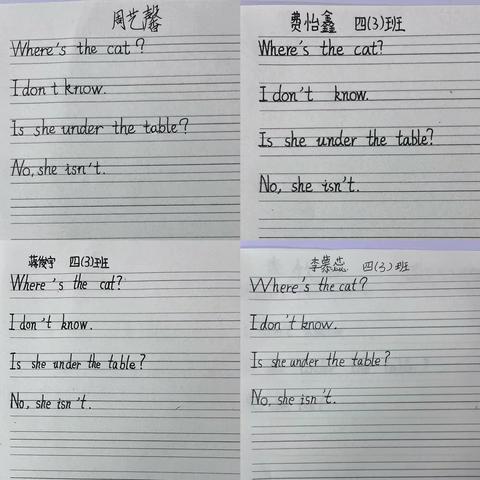 周艺馨
Where's the cat?
I don t know.
Is she under the table?
No, she isn't.
费怡鑫 四(3)班
Where's the cat?
I don't know.
Is she under the table?
No, she isn't.
蒋俊宇 四(3)班
Where 's the cat?
I don 't know.
Is she under the table?
No, she isn 't.
李慕 四(3)班
Where's the cat?
I don't know.
Is she under the table?
No, she isn 't.